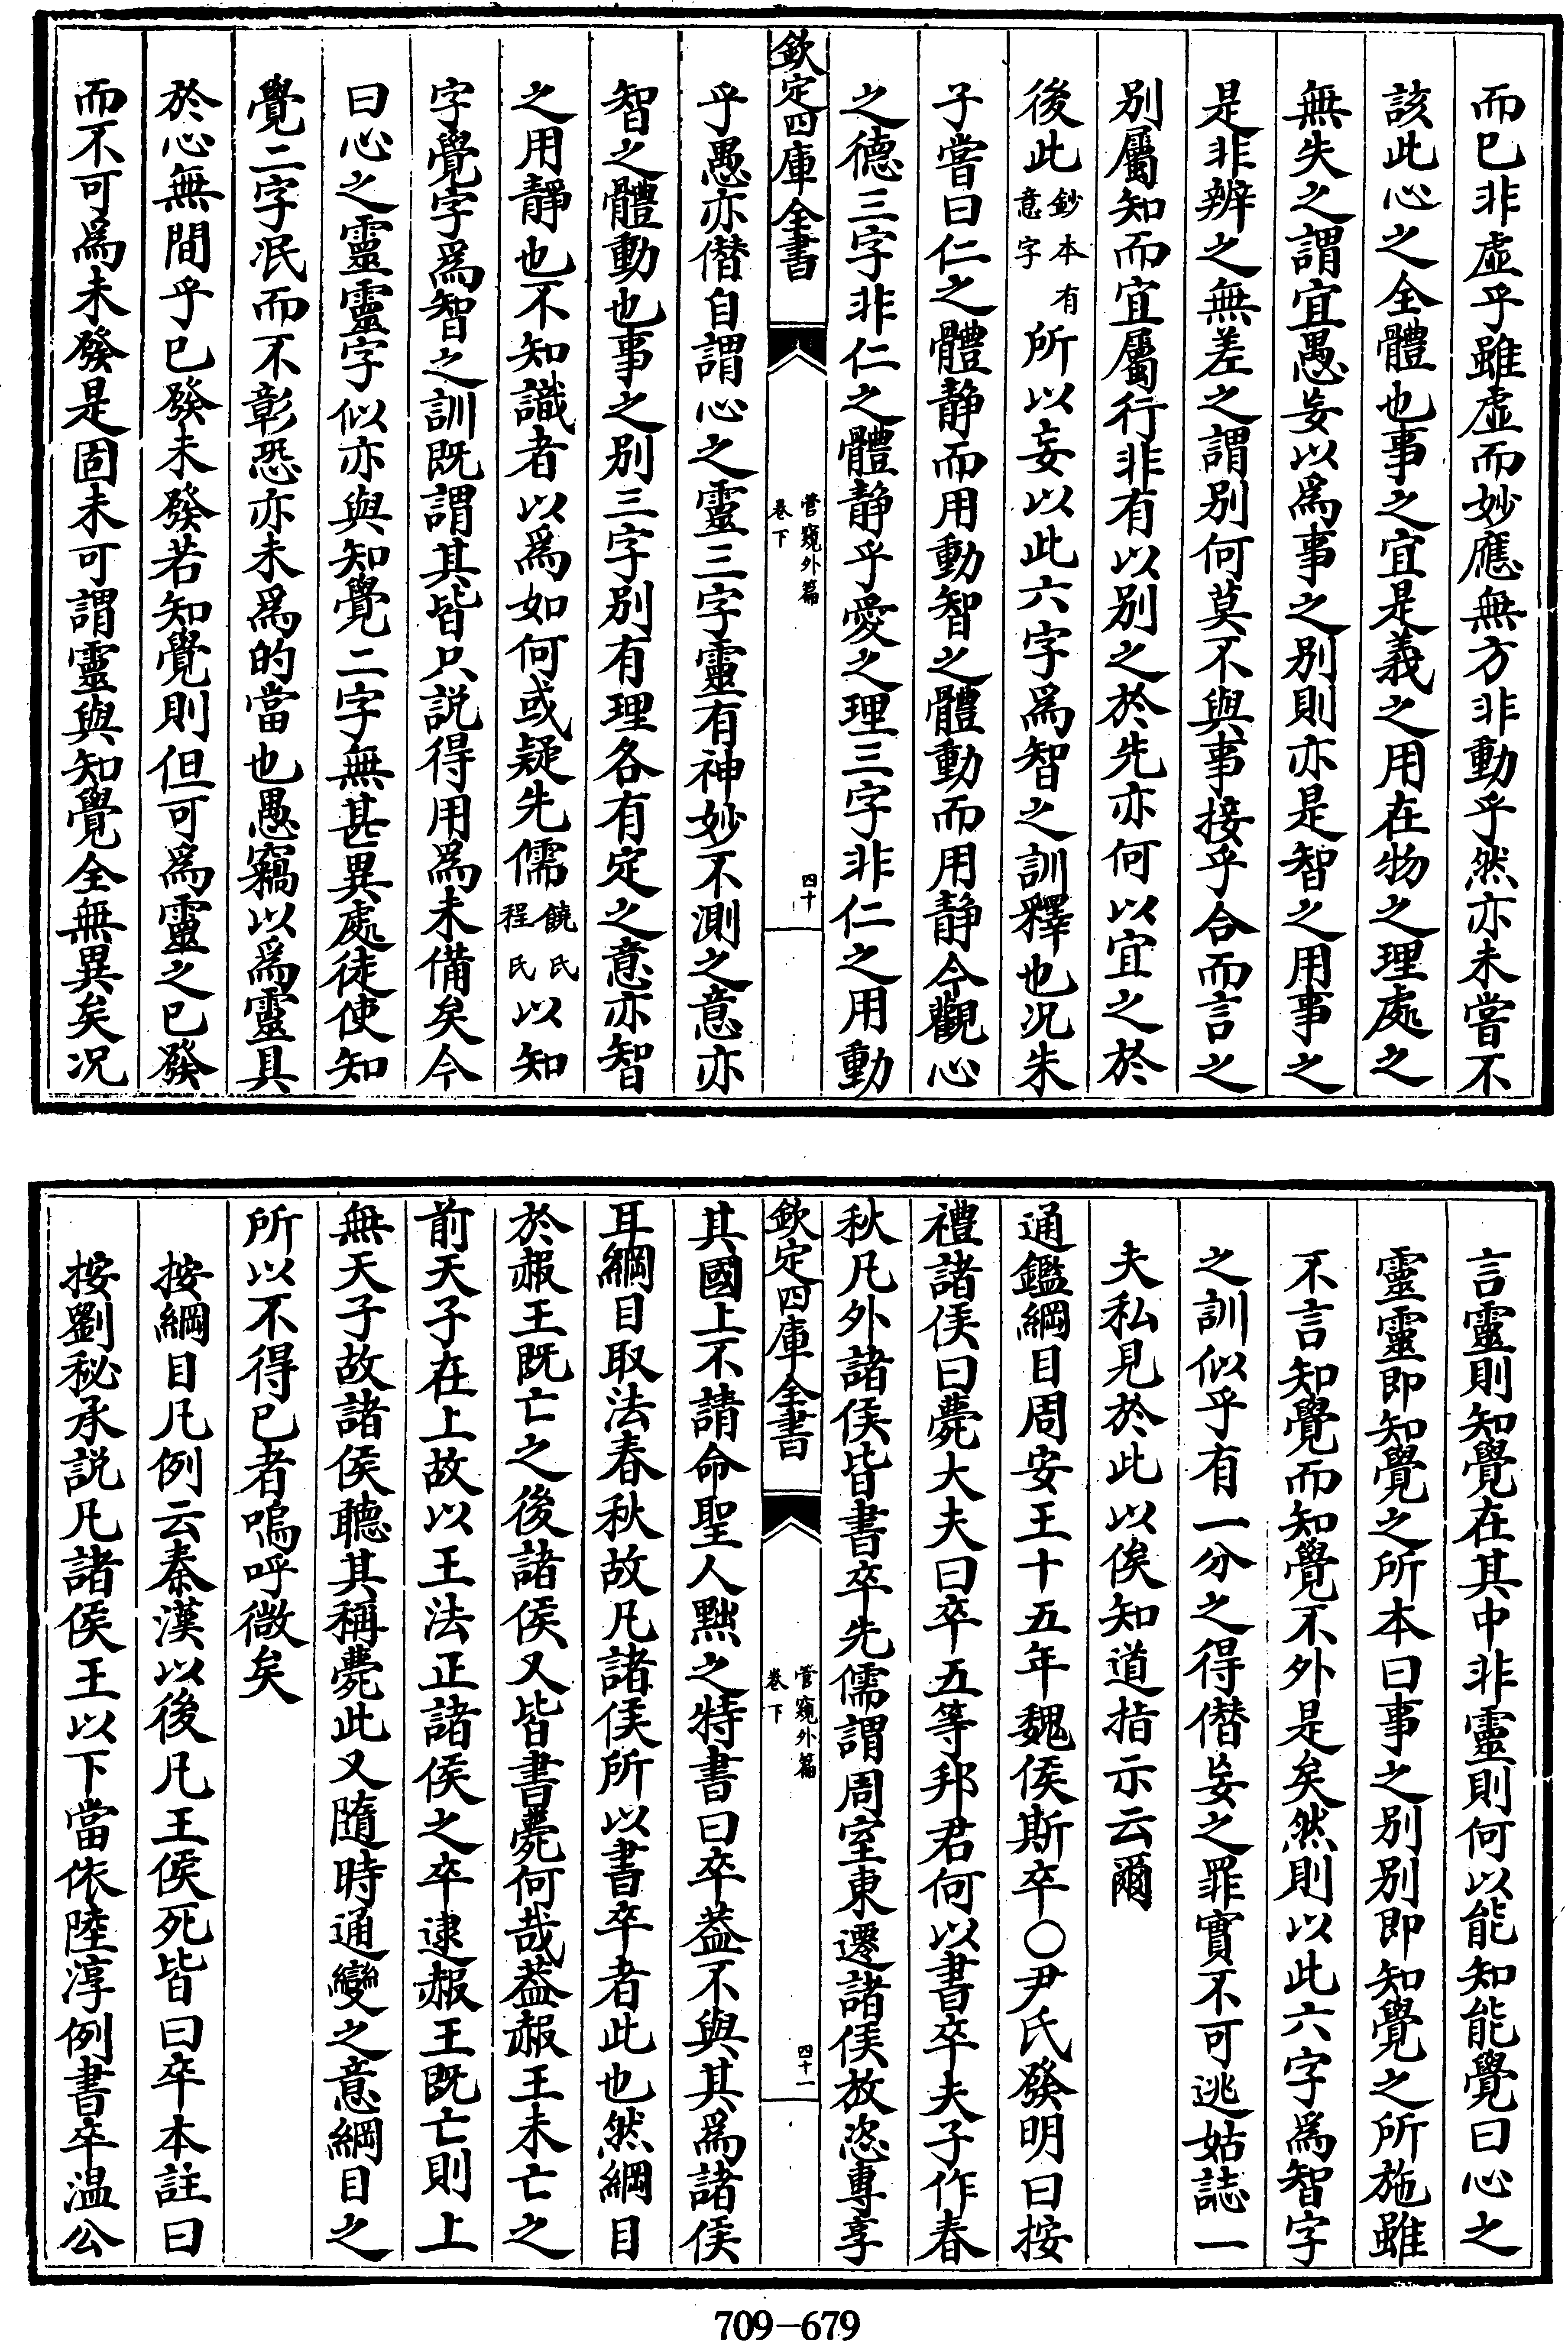 而已非虛乎雖虛而妙應無方非動乎然亦未嘗不
該此心之全體也事之宜是義之用在物之理處之
無失之謂宜愚妄以為事之别則亦是智之用事之
是非辨之無差之謂别何莫不與事接乎合而言之
别屬知而宜屬行非有以别之於先亦何以宜之於
後此鈔本有意字所以妄以此六字為智之訓釋也况朱
子嘗曰仁之體靜而用動智之體動而用靜今觀心
之德三字非仁之體靜乎愛之理三字非仁之用動
欽定四庫全書
管窺外篇
卷下
四十
乎愚亦僭自謂心之靈三字靈有神妙不測之意亦
智之體動也事之别三字别有理各有定之意亦智
之用靜也不知識者以為如何或疑先儒饒氏程氏以知
字覺字為智之訓既謂其皆只説得用為未備矣今
曰心之靈靈字似亦與知覺二字無甚異處徒使知
覺二字泯而不彰恐亦未為的當也愚竊以為靈具
於心無間乎已發未發若知覺則但可為靈之已發
而不可為未發是固未可謂靈與知覺全無異矣况
言靈則知覺在其中非靈則何以能知能覺曰心之
靈靈即知覺之所本曰事之别别即知覺之所施雖
不言知覺而知覺不外是矣然則以此六字為智字
之訓似乎有一分之得僭妄之罪實不可逃姑誌一
夫私見於此以俟知道指示云爾
通鑑綱目周安王十五年魏侯斯卒○尹氏發明曰按
禮諸侯曰薨大夫曰卒五等邦君何以書卒夫子作春
秋凡外諸侯皆書卒先儒謂周室東遷諸侯放恣專享
欽定四庫全書
管窺外篇
卷下
四十一
其國上不請命聖人黜之特書曰卒葢不與其為諸侯
耳綱目取法春秋故凡諸侯所以書卒者此也然綱目
於赧王既亡之後諸侯又皆書薨何哉葢赧王未亡之
前天子在上故以王法正諸侯之卒逮赧王既亡則上
無天子故諸侯聽其稱薨此又隨時通變之意綱目之
所以不得已者嗚呼微矣
按綱目凡例云秦漢以後凡王侯死皆曰卒本註曰
按劉秘丞説凡諸侯王以下當依陸淳例書卒温公
709-679